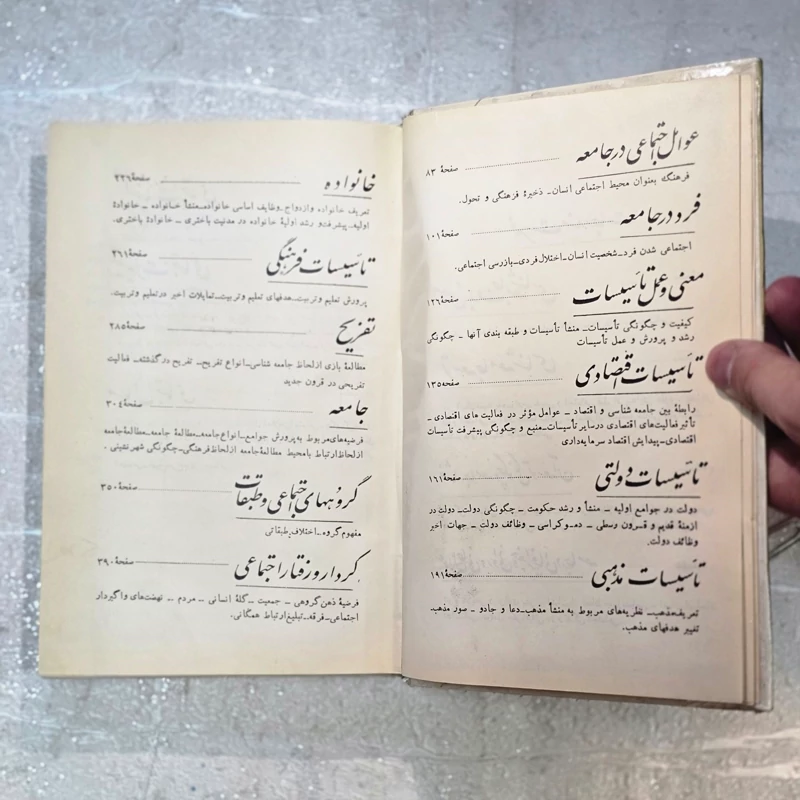 عوامل اجتماعی در جامعه ........ صفحهٔ ۸۳
فرهنگ بعنوان محیط اجتماعی انسان ـ ذخیرهٔ فرهنگی و تحول.
فرد در جامعه ........ صفحهٔ ۱۰۱
اجتماعی شدن فرد ـ شخصیت انسان ـ اختلال فردی ـ بازرسی اجتماعی.
معنی و عمل تأسیسات ........ صفحهٔ ۱۲۶
کیفیت و چگونگی تأسیسات ـ منشأ تأسیسات و طبقه بندی آنها ـ چگونگی
رشد و پرورش و عمل تأسیسات
تأسیسات اقتصادی ........ صفحه ۱۳۵
رابطهٔ بین جامعه شناسی و اقتصاد ـ عوامل مؤثر در فعالیت های اقتصادی ـ
تأثیر فعالیت‌های اقتصادی در سایر تأسیسات ـ منبع و چگونگی پیشرفت تأسیسات
اقتصادی ـ پیدایش اقتصاد سرمایه‌داری
تأسیسات دولتی ........ صفحهٔ ۱۶۱
دولت در جوامع اولیه ـ منشأ و رشد حکومت ـ چگونگی دولت ـ دولت در
ازمنهٔ قدیم و قسرون وسطی ـ دموکراسی ـ وظائف دولت ـ جهات اخیر
وظائف دولت.
تأسیسات مذهبی ........ صفحهٔ ۱۹۱
تعریف مذهب ـ نظریه‌های مربوط به منشأ مذهب ـ دعا و جادو ـ صور مذهب ـ
تغییر هدفهای مذهب.
خانواده ........ صفحهٔ ۲۲۶
تعریف خانواده و ازدواج ـ وظایف اساسی خانواده ـ منشأ خانواده ـ خانوادهٔ
اولیه ـ پیشرفت و رشد اولیهٔ خانواده در مدنیت باختری ـ خانوادهٔ باختری.
تأسیسات فرهنگی ........ صفحهٔ ۲۶۱
پرورش تعلیم و تربیت ـ هدفهای تعلیم و تربیت ـ تمایلات اخیر در تعلیم و تربیت.
تفریح ........ صفحهٔ ۲۸۵
مطالعهٔ بازی از لحاظ جامعه شناسی ـ انواع تفریح ـ تفریح در گذشته ـ فعالیت
تفریحی در قرون جدید
جامعه ........ صفحهٔ ۳۰۴
فرضیه‌های مربوط به پرورش جوامع ـ انواع جامعه ـ مطالعهٔ جامعه ـ مطالعهٔ جامعه
از لحاظ ارتباط با محیط مطالعهٔ جامعه از لحاظ فرهنگی ـ چگونگی شهر نشینی.
گروههای اجتماعی و طبقات ........ صفحهٔ ۳۵۰
مفهوم گروه ـ اختلاف طبقاتی
کردار و رفتار اجتماعی ........ صفحهٔ ۳۹۰
فرضیهٔ ذهن گروهی ـ جمعیت ـ گلهٔ انسانی ـ مردم ـ نهضت‌های واگیردار
اجتماعی ـ فرقه ـ تبلیغ ارتباط همگانی.